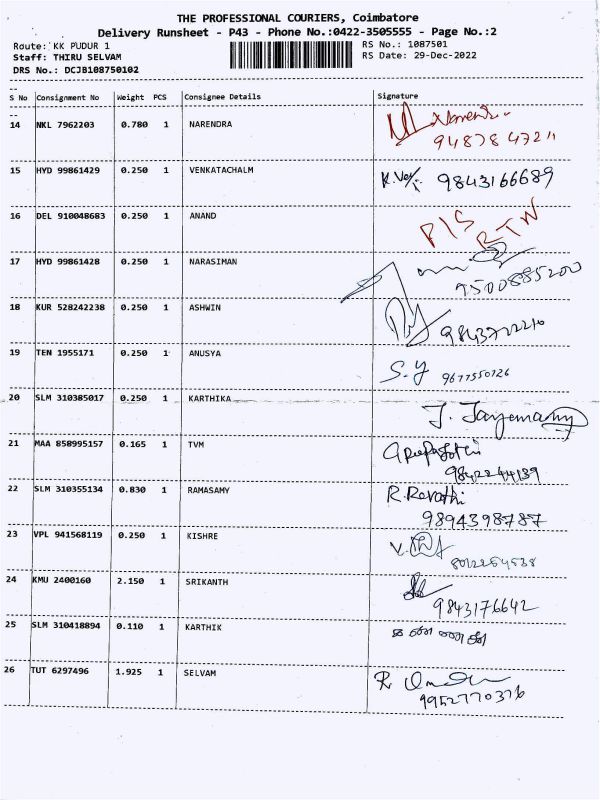 THE PROFESSIONAL COURIERS, Coimbatore
Delivery Runsheet - P43 - Phone No.:0422-3505555 - Page No.:2
Route: KK PUDUR 1 RS No.: 1087501
Staff: THIRU SELVAM RS Date: 29-Dec-2022
DRS No.: DCJB108750102
S No Consignment No Weight PCS Consignee Details Signature
14 NKL 7962203 0.780 1 NARENDRA
15 HYD 99861429 0.250 1 VENKATACHALM
9843166689
16 DEL 910048683 0.250 1 ANAND
RTW
17 HYD 99861428 0.250 1 NARASIMAN
9500885200
18 KUR 528242238 0.250 1 ASHWIN
19 TEN 1955171 0.250 1 ANUSYA S.Y
9677550726
20 SLM 310385017 0.250 1 KARTHIKA
J.
21 MAA 858995157 0.165 1 TVM
22 SLM 310355134 0.830 1 RAMASAMY R.Revathi
9894398787
23 VPL 941568119 0.250 1 KISHRE
8012254538
24 KMU 2400160 2.150 1 SRIKANTH
9843176642
25 SLM 310418894 0.110 1 KARTHIK
26 TUT 6297496 1.925 1 SELVAM
9952770376